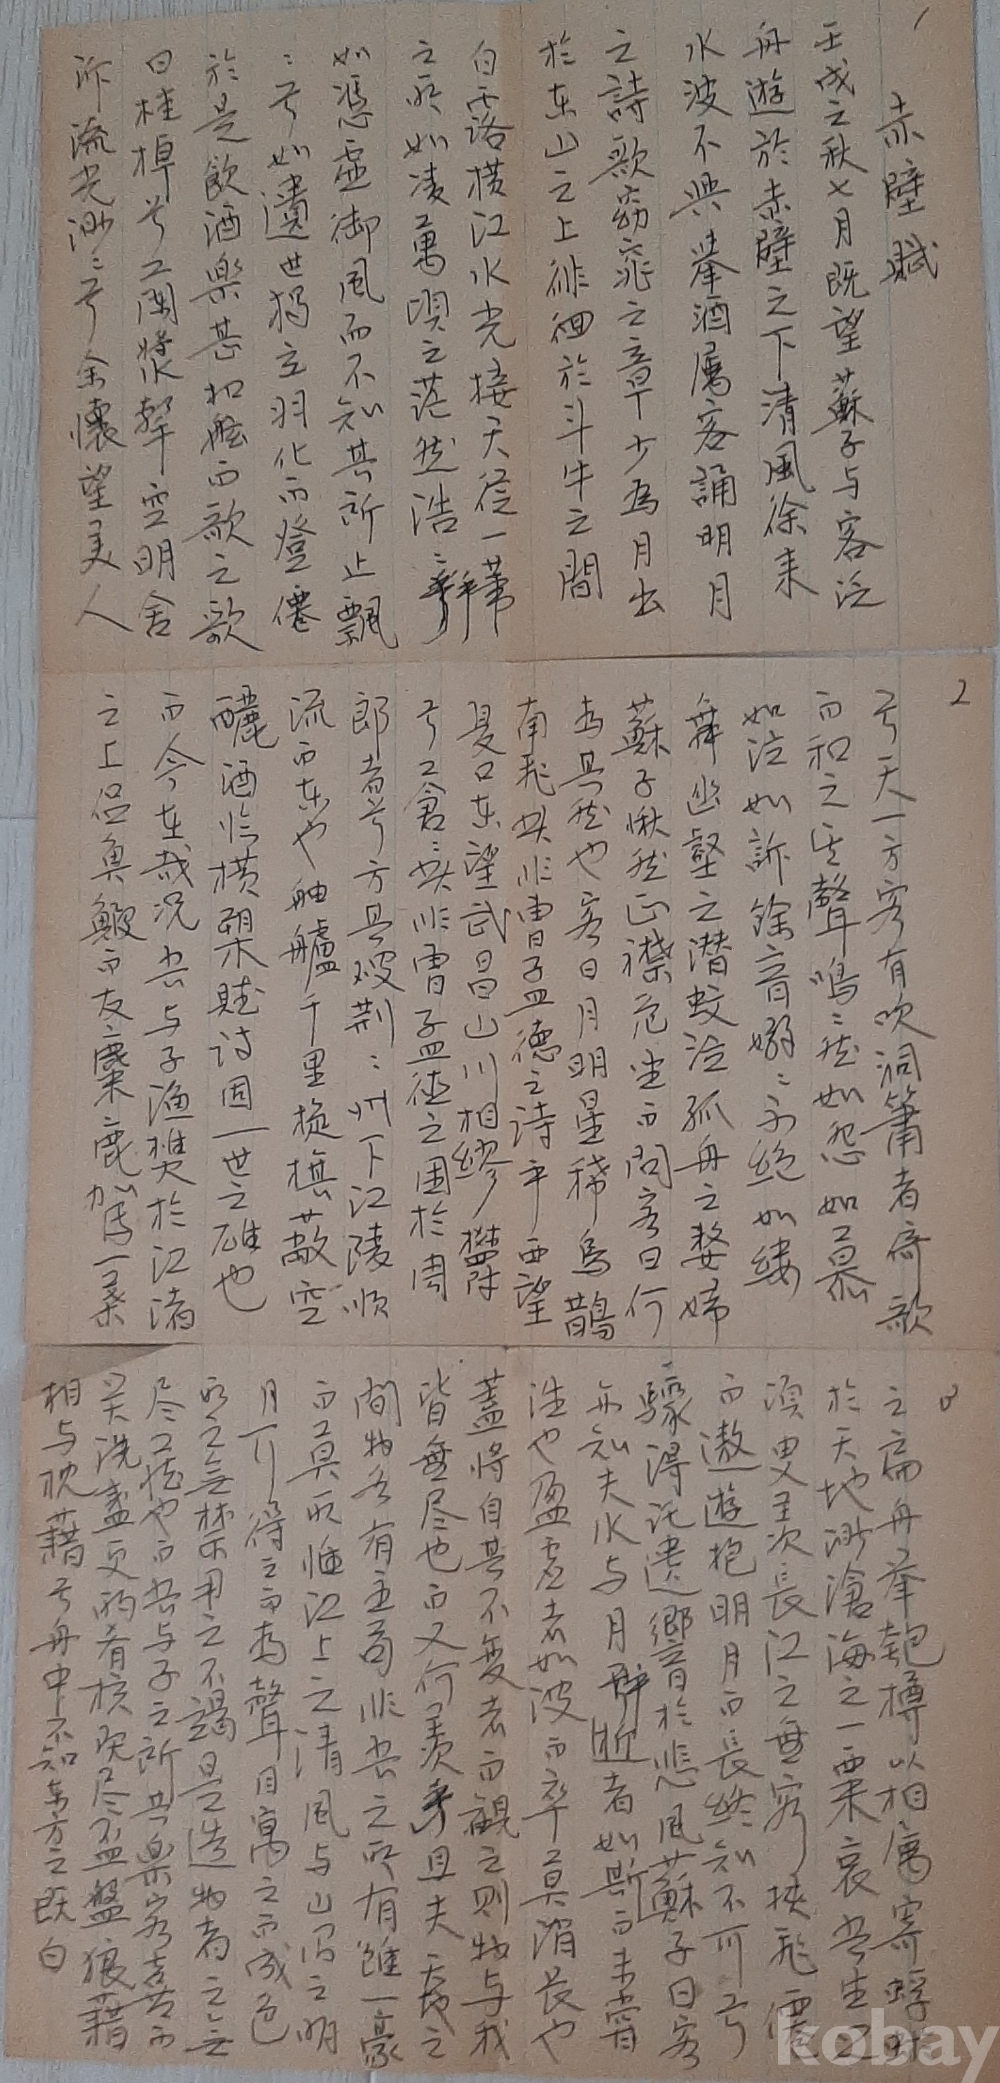 1
赤壁賦
壬戌之秋七月既望蘇子与客泛
舟遊於赤壁之下清風徐来
水波不興擧酒属客誦明月
之詩歌窈窕之章少焉月出
於东山之上徘徊於斗牛之間
白露横江水光接天從一葦
之所如凌萬頃之茫然浩〻乎
如憑虛御風而不知其所止飄
〻乎如遺世獨立羽化而登僊
於是飮酒樂甚扣舷而歌之歌
曰桂棹兮蘭槳擊空明兮
泝流光渺〻兮余懷望美人
2
兮天一方客有吹洞簫者倚歌
而和之其聲嗚〻然如怨如慕
如泣如訴餘音嫋〻不絶如縷
舞幽壑之潛蛟泣孤舟之嫠婦
蘇子愀然正襟危坐而問客曰何
為其然也客曰月明星稀烏鵲
南飛此非曹孟德之诗乎西望
夏口东望武昌山川相繆鬱
乎蒼〻此非曹孟德之困於周
郎者乎方其破荆〻州下江陵順
流而东也舳艫千里旌旗蔽空
釃酒临横槊賦诗固一世之雄也
而今在哉况吾与子渔樵於江渚
之上侶魚鰕而友麋鹿駕一葉
3
之扁舟挙匏樽以相属寄蜉蝣
於天地渺滄海之一粟哀吾生之
須臾羡長江之無窮挾飛僊
而遨遊抱明月而長終知不可乎
驟得託遺響於悲風蘇子曰客
亦知夫水与月乎逝者如斯而未嘗
往也盈虚者如彼而卒莫消長也
蓋將自其不变者而観之則物与我
皆無尽也而又何羨乎且夫天地之
間物各有主苟非吾之所有雖一毫
而莫取惟江上之清風与山間之明
月耳得之而為聲目寓之而成色
取之無禁用之不竭是造物者之無
尽蔵也而吾与子之所共樂客喜而
笑洗盞更酌肴核既尽盃盤狼藉
相与枕藉乎舟中不知东方之既白
kobay